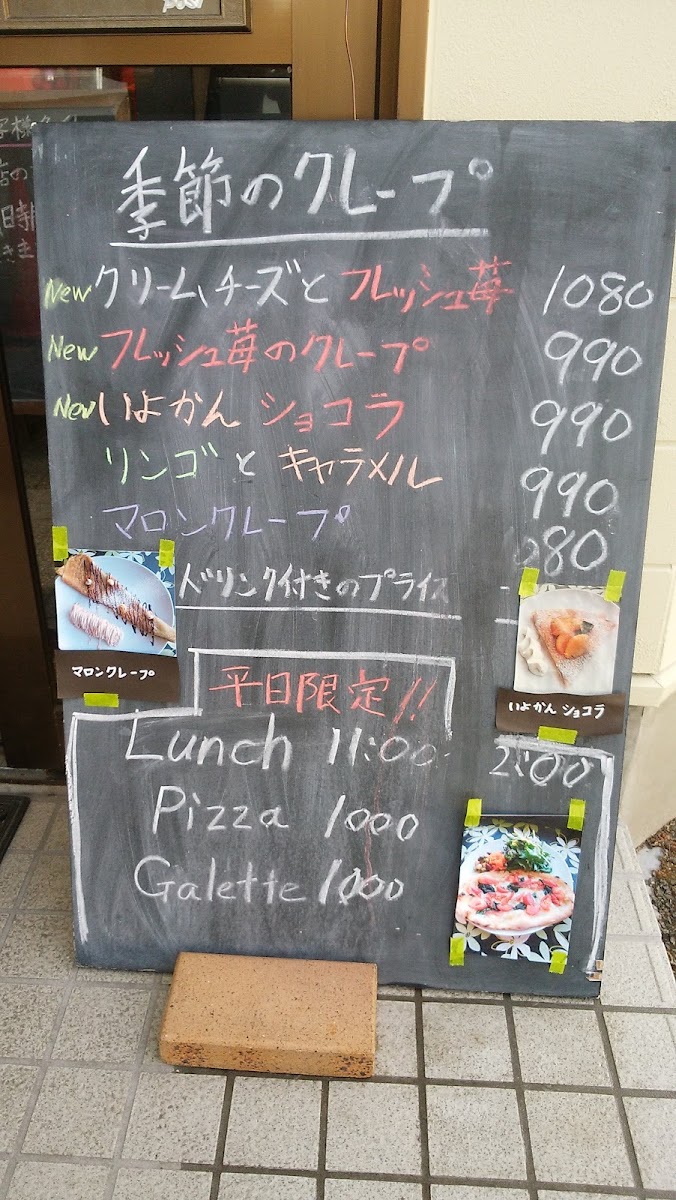 季節のクレープ
New クリームチーズとフレッシュ苺 1080
New フレッシュ苺のクレープ 990
New いよかん ショコラ 990
リンゴと キャラメル 990
マロンクレープ 1080
ドリンク付きのプライス
マロンクレープ
いよかん ショコラ
平日限定!!
Lunch 11:00- 2:00
Pizza 1000
Galette 1000